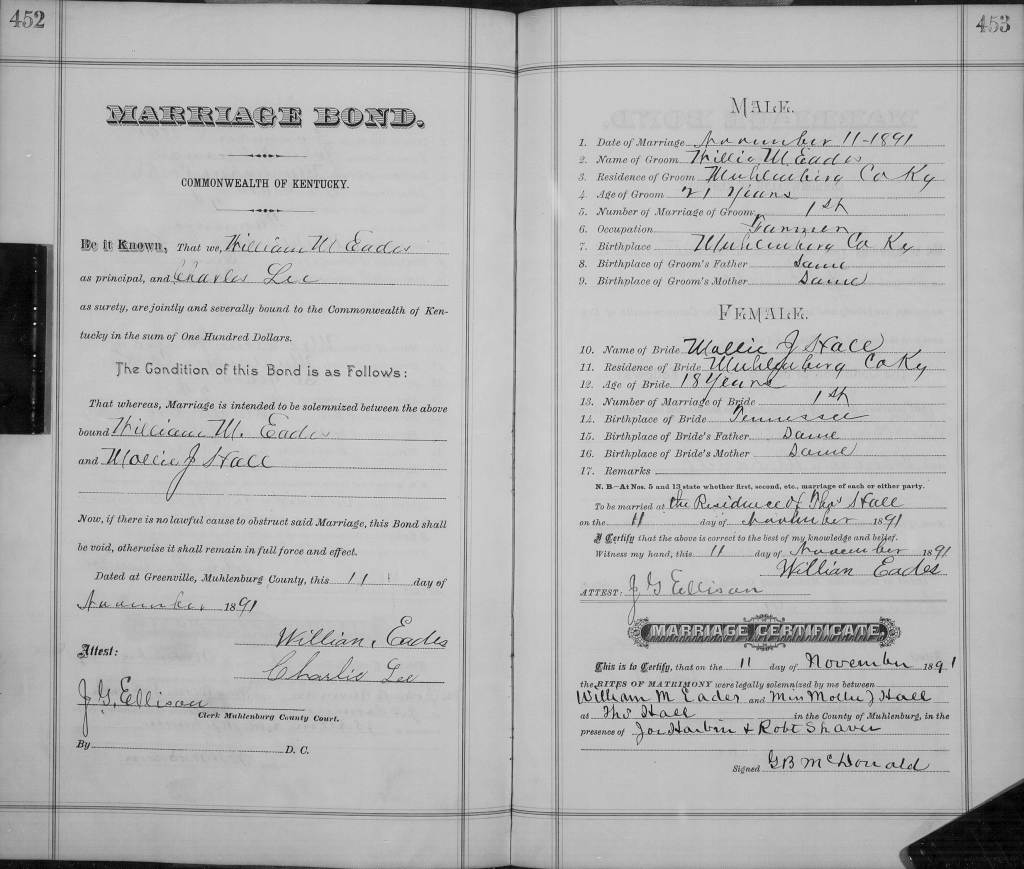 452
MARRIAGE BOND.
COMMONWEALTH OF KENTUCKY.
Be it Known, That we, William M Eades
as principal, and Charles Lee
as surety, are jointly and severally bound to the Commonwealth of Ken-
tucky in the sum of One Hundred Dollars.
The Condition of this Bond is as Follows:
That whereas, Marriage is intended to be solemnized between the above
bound William M. Eades
and Mollie J Hall
Now, if there is no lawful cause to obstruct said Marriage, this Bond shall
be void, otherwise it shall remain in full force and effect.
Dated at Greenville, Muhlenburg County, this 11 day of
November 1891
William, Eades
Attest:
Charlis Lee
J. G. Ellison
Clerk Muhlenburg County Court.
By D. C.
453
MALE.
1. Date of Marriage November 11-1891
2. Name of Groom Willie M. Eades
3. Residence of Groom Muhlenberg Co Ky
4. Age of Groom 21 Years
5. Number of Marriage of Groom 1st
6. Occupation Farmer
7. Birthplace Muhlenberg Co Ky
8. Birthplace of Groom's Father Same
9. Birthplace of Groom's Mother Same
FEMALE.
10. Name of Bride Mollie J Hall
11. Residence of Bride Muhlenberg Co Ky
12. Age of Bride 18 Years
13. Number of Marriage of Bride 1st
14. Birthplace of Bride Tennessee
15. Birthplace of Bride's Father Same
16. Birthplace of Bride's Mother Same
17. Remarks
N. B.—At Nos. 5 and 13 state whether first, second, etc., marriage of each or either party.
To be married at the Residence of Thos Hall
on the 11 day of November 1891
I Certify that the above is correct to the best of my knowledge and belief.
Witness my hand, this 11 day of November 1891
Willian Eades
ATTEST: J G Ellison
MARRIAGE CERTIFICATE.
This is to Certify, that on the 11 day of November 1891
the RITES OF MATRIMONY were legally solemnized by me between
William M Eades and Miss Mollie J Hall
at Thos Hall in the County of Muhlenburg, in the
presence of Joe Harbin & Robt Shaver
Signed G B McDonald